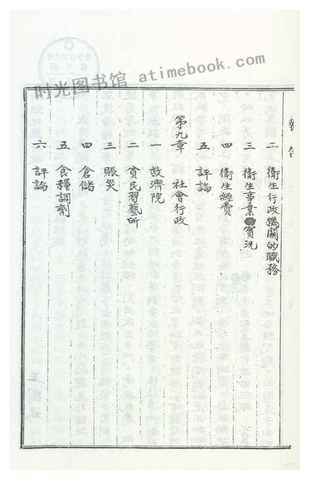 时光图书馆 atimebook.com
二 衛生行政機關的職務
三 衛生事業實況
四 衛生經費
五 評論
第九章 社會行政
一 救濟院
二 貧民習藝所
三 賑災
四 倉儲
五 食糧調劑
六 評論